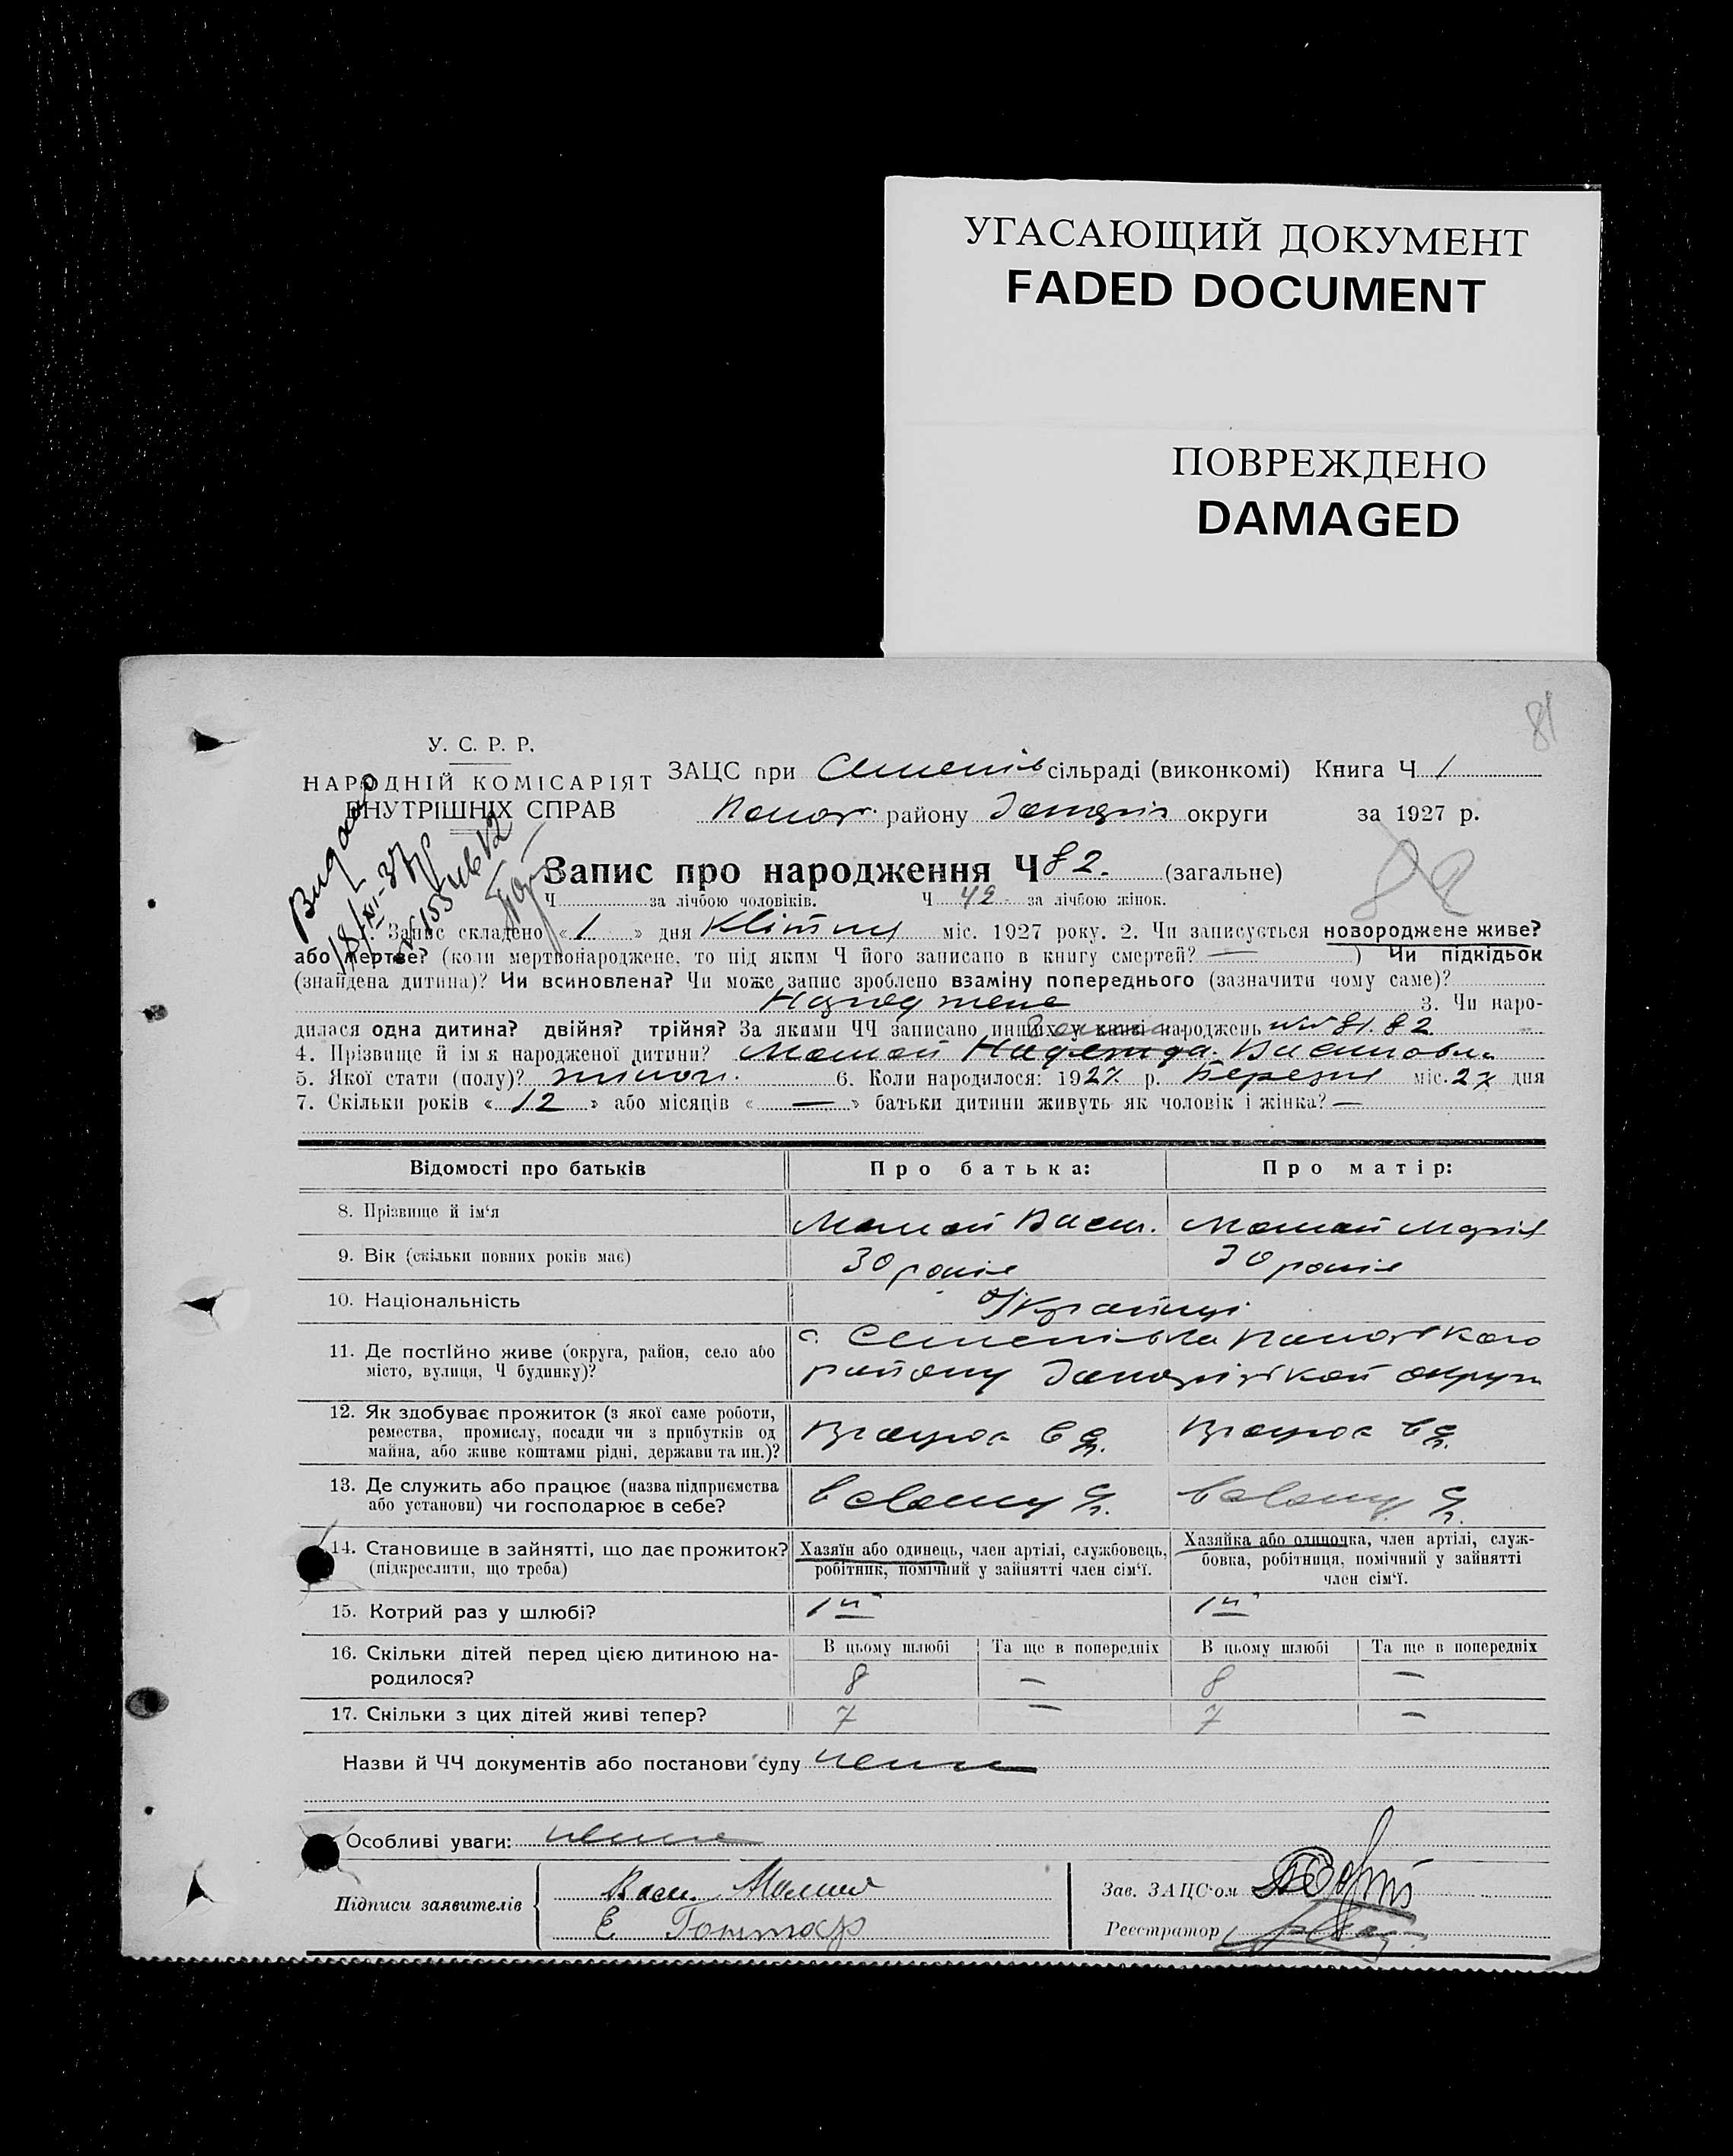 УГАСАЮЩИЙ ДОКУМЕНТ
FADED DOCUMENT
ПОВРЕЖДЕНО
DAMAGED
81
У. С. Р. Р.
НАРОДНІЙ КОМІСАРІЯТ
ВНУТРІШНІХ СПРАВ
ЗАЦС при Семенів сільраді (виконкомі) Книга Ч 1
району Запоріз округи за 1927 р.
Видано
Запис про народження Ч 82. (загальне)
82
Ч за лічбою чоловіків. Ч 42 за лічбою жінок.
1. Запис складено «1» дня Квітня міс. 1927 року. 2. Чи записується новороджене живе?
або мертве? (коли мертвонароджене, то під яким Ч його записано в книгу смертей? — ) Чи підкідьок
(знайдена дитина)? Чи всиновлена? Чи може запис зроблено взаміну попереднього (зазначити чому саме)?
Народжене 3. Чи наро-
дилася одна дитина? двійня? трійня? За якими ЧЧ записано инших у книзі народжень №№ 81. 82
4. Прізвище й ім'я народженої дитини? Мамай Надежда
5. Якої статі (полу)? жіноч. 6. Коли народилося: 1927 р. Березня міс. 27 дня
7. Скільки років «12» або місяців «—» батьки дитини живуть як чоловік і жінка? —
Відомості про батьків Про батька: Про матір:
8. Прізвище й ім'я Мамай Васил. Мамай Марія
9. Вік (скільки повних років має) 30 років 30 років
10. Національність Українці
11. Де постійно живе (округа, район, село або
місто, вулиця, Ч будинку)?
с. Семенівка
району Запорізької округи
12. Як здобуває прожиток (з якої саме роботи,
ремества, промислу, посади чи з прибутків од
майна, або живе коштами рідні, держави та ин.)?
13. Де служить або працює (назва підприємства
або установи) чи господарює в себе?
14. Становище в зайнятті, що дає прожиток?
(підкреслити, що треба)
Хазяїн або одинець, член артілі, службовець,
робітник, помічний у зайнятті член сім'ї.
Хазяйка або одиночка, член артілі, служ-
бовка, робітниця, помічний у зайнятті
член сім'ї.
15. Котрий раз у шлюбі? 1й 1й
16. Скільки дітей перед цією дитиною на-
родилося?
В цьому шлюбі Та ще в попередніх В цьому шлюбі Та ще в попередніх
8 — 8 —
17. Скільки з цих дітей живі тепер? 7 — 7 —
Назви й ЧЧ документів або постанови суду нема
Особливі уваги: нема
Підписи заявителів
Васи. Мамай
Е Гонтар
Зав. ЗАЦС'ом
Реєстратор